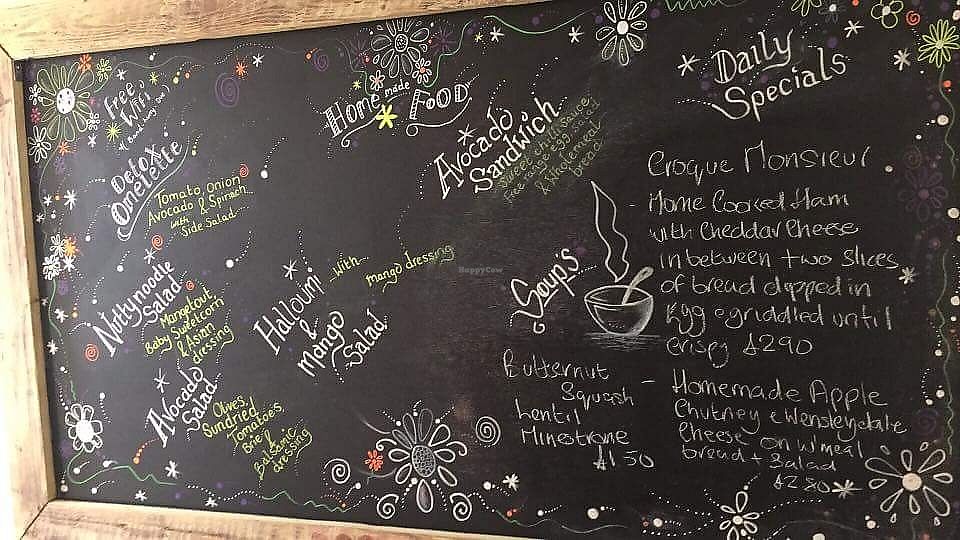 Free
Wifi
Detox
Omelette
Tomato, Onion
Avocado & Spinach
with
Side Salad
Nutty noodle
Salad
Mangetout
Baby Sweetcorn
& Asian
dressing
Avocado
Salad
Olives,
Sundried
Tomatoes,
Brie &
Balsamic
dressing
Home made
Food
Halloumi
&
mango
Salad
with
mango dressing
HappyCow
Avocado
Sandwich
Sweet chilli Sauce
Free range Egg, Salad
& wholemeal
bread
Soup's
Butternut
Squash
Lentil
Minestrone
£1.50
Daily
Specials
Croque Monsieur
- Home Cooked Ham
with Cheddar Cheese
in between two slices
of bread dipped in
Egg & griddled until
Crispy £2.90
- Homemade Apple
Chutney & Wensleydale
Cheese on w'meal
bread + Salad
£2.80